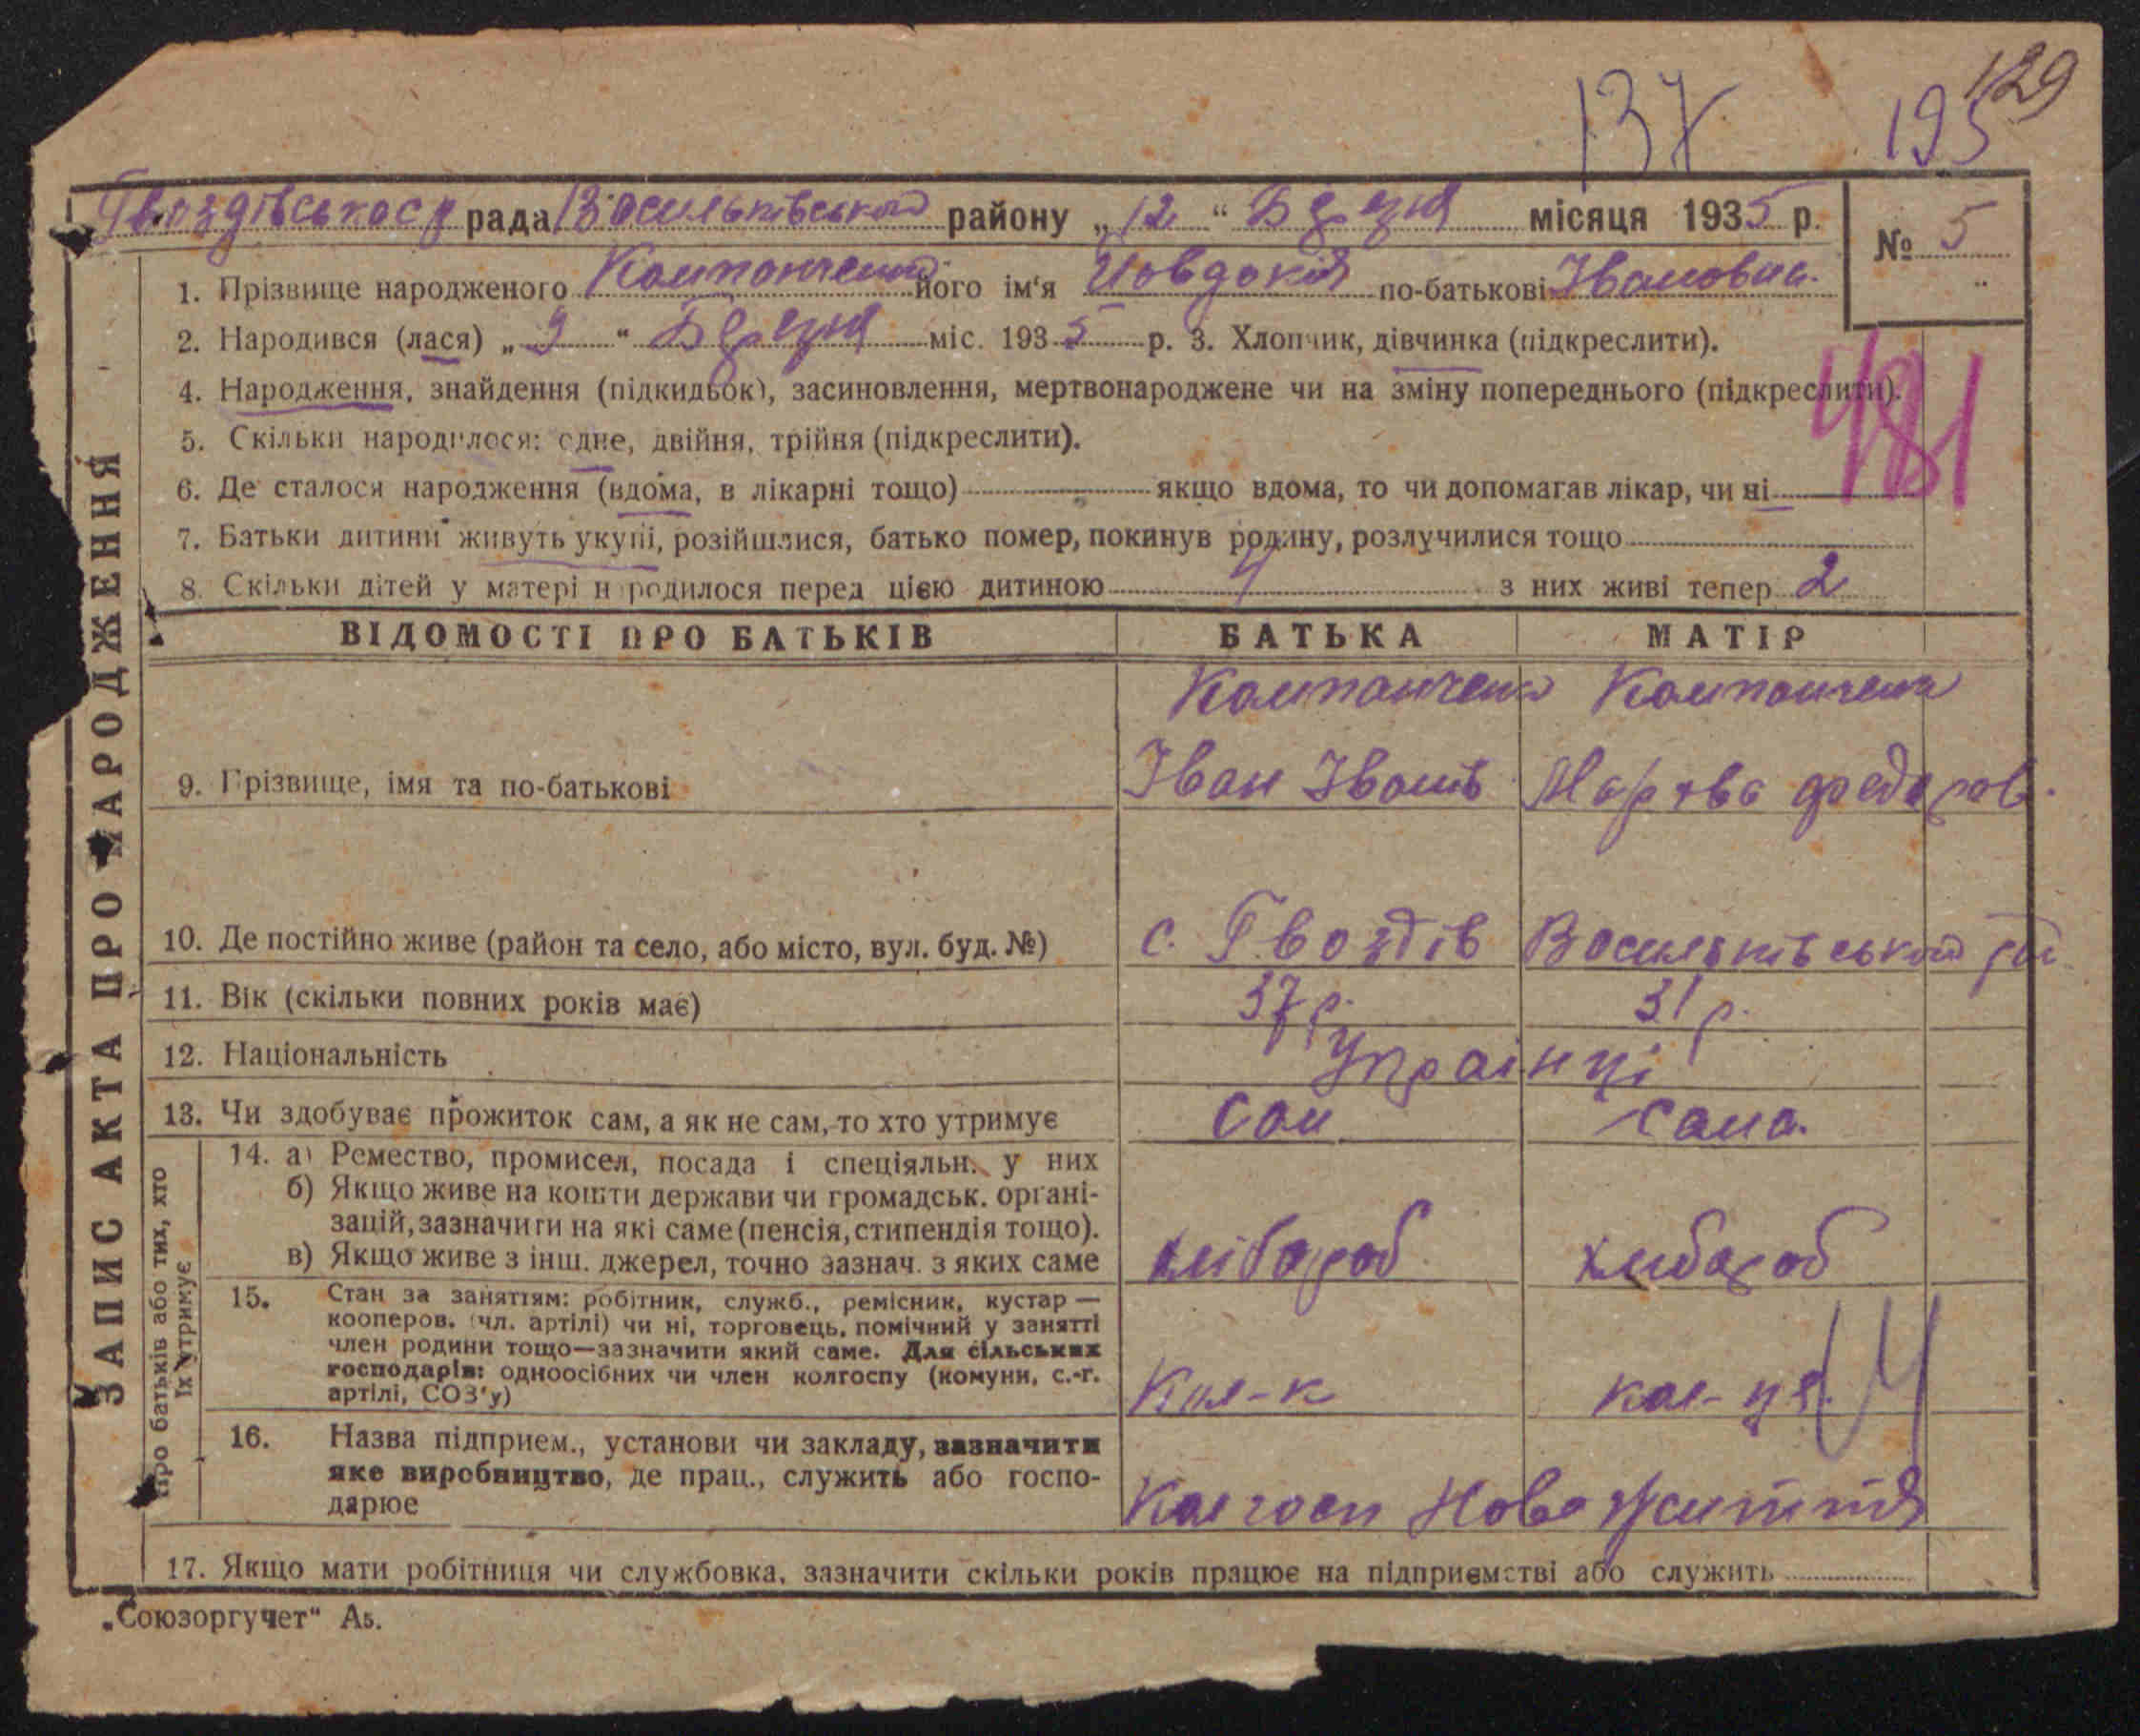 129
137
195
Гвоздівська с рада Васильківського району „12“ Березня місяця 1935 р.
№ 5
1. Прізвище народженого Компанченко його ім'я Йовдокія по-батькові Івановна.
2. Народився (лася) „9“ Березня міс. 1935 р. 3. Хлопчик, дівчинка (підкреслити).
4. Народження, знайдення (підкидьок), засиновлення, мертвонароджене чи на зміну попереднього (підкреслити).
481
5. Скільки народилося: одне, двійня, трійня (підкреслити).
6. Де сталося народження (вдома, в лікарні тощо) якщо вдома, то чи допомагав лікар, чи ні
7. Батьки дитини живуть укупі, розійшлися, батько помер, покинув родину, розлучилися тощо
8. Скільки дітей у матері народилося перед цією дитиною 4 з них живі тепер 2
ЗАПИС АКТА ПРО НАРОДЖЕННЯ
ВІДОМОСТІ ПРО БАТЬКІВ БАТЬКА МАТІР
Компанченко Компанченко
9. Прізвище, імя та по-батькові Іван Іванів Марфа Федоров.
10. Де постійно живе (район та село, або місто, вул. буд. №) с. Гвоздів Васильківського рай
11. Вік (скільки повних років має) 37 р. 31 р.
12. Національність Українці
13. Чи здобуває прожиток сам, а як не сам, то хто утримує сам сама.
Про батьків або тих, хто їх утримує
14. а) Ремество, промисел, посада і спеціяльн. у них
б) Якщо живе на кошти держави чи громадськ. органі-
зацій, зазначити на які саме (пенсія, стипендія тощо).
в) Якщо живе з інш. джерел, точно зазнач. з яких саме хлібороб хлибороб
15. Стан за заняттям: робітник, служб., ремісник, кустар —
кооперов. (чл. артілі) чи ні, торговець, помічний у занятті
член родини тощо—зазначити який саме. Для сільських
господарів: одноосібних чи член колгоспу (комуни, с.-г.
артілі, СОЗ'у) Кол-к кол-ця
16. Назва підприєм., установи чи закладу, зазначити
яке виробництво, де прац., служить або госпо-
дарює Колгосп Нове Життя
17. Якщо мати робітниця чи службовка, зазначити скільки років працює на підприємстві або служить
„Союзоргучет“ А5.